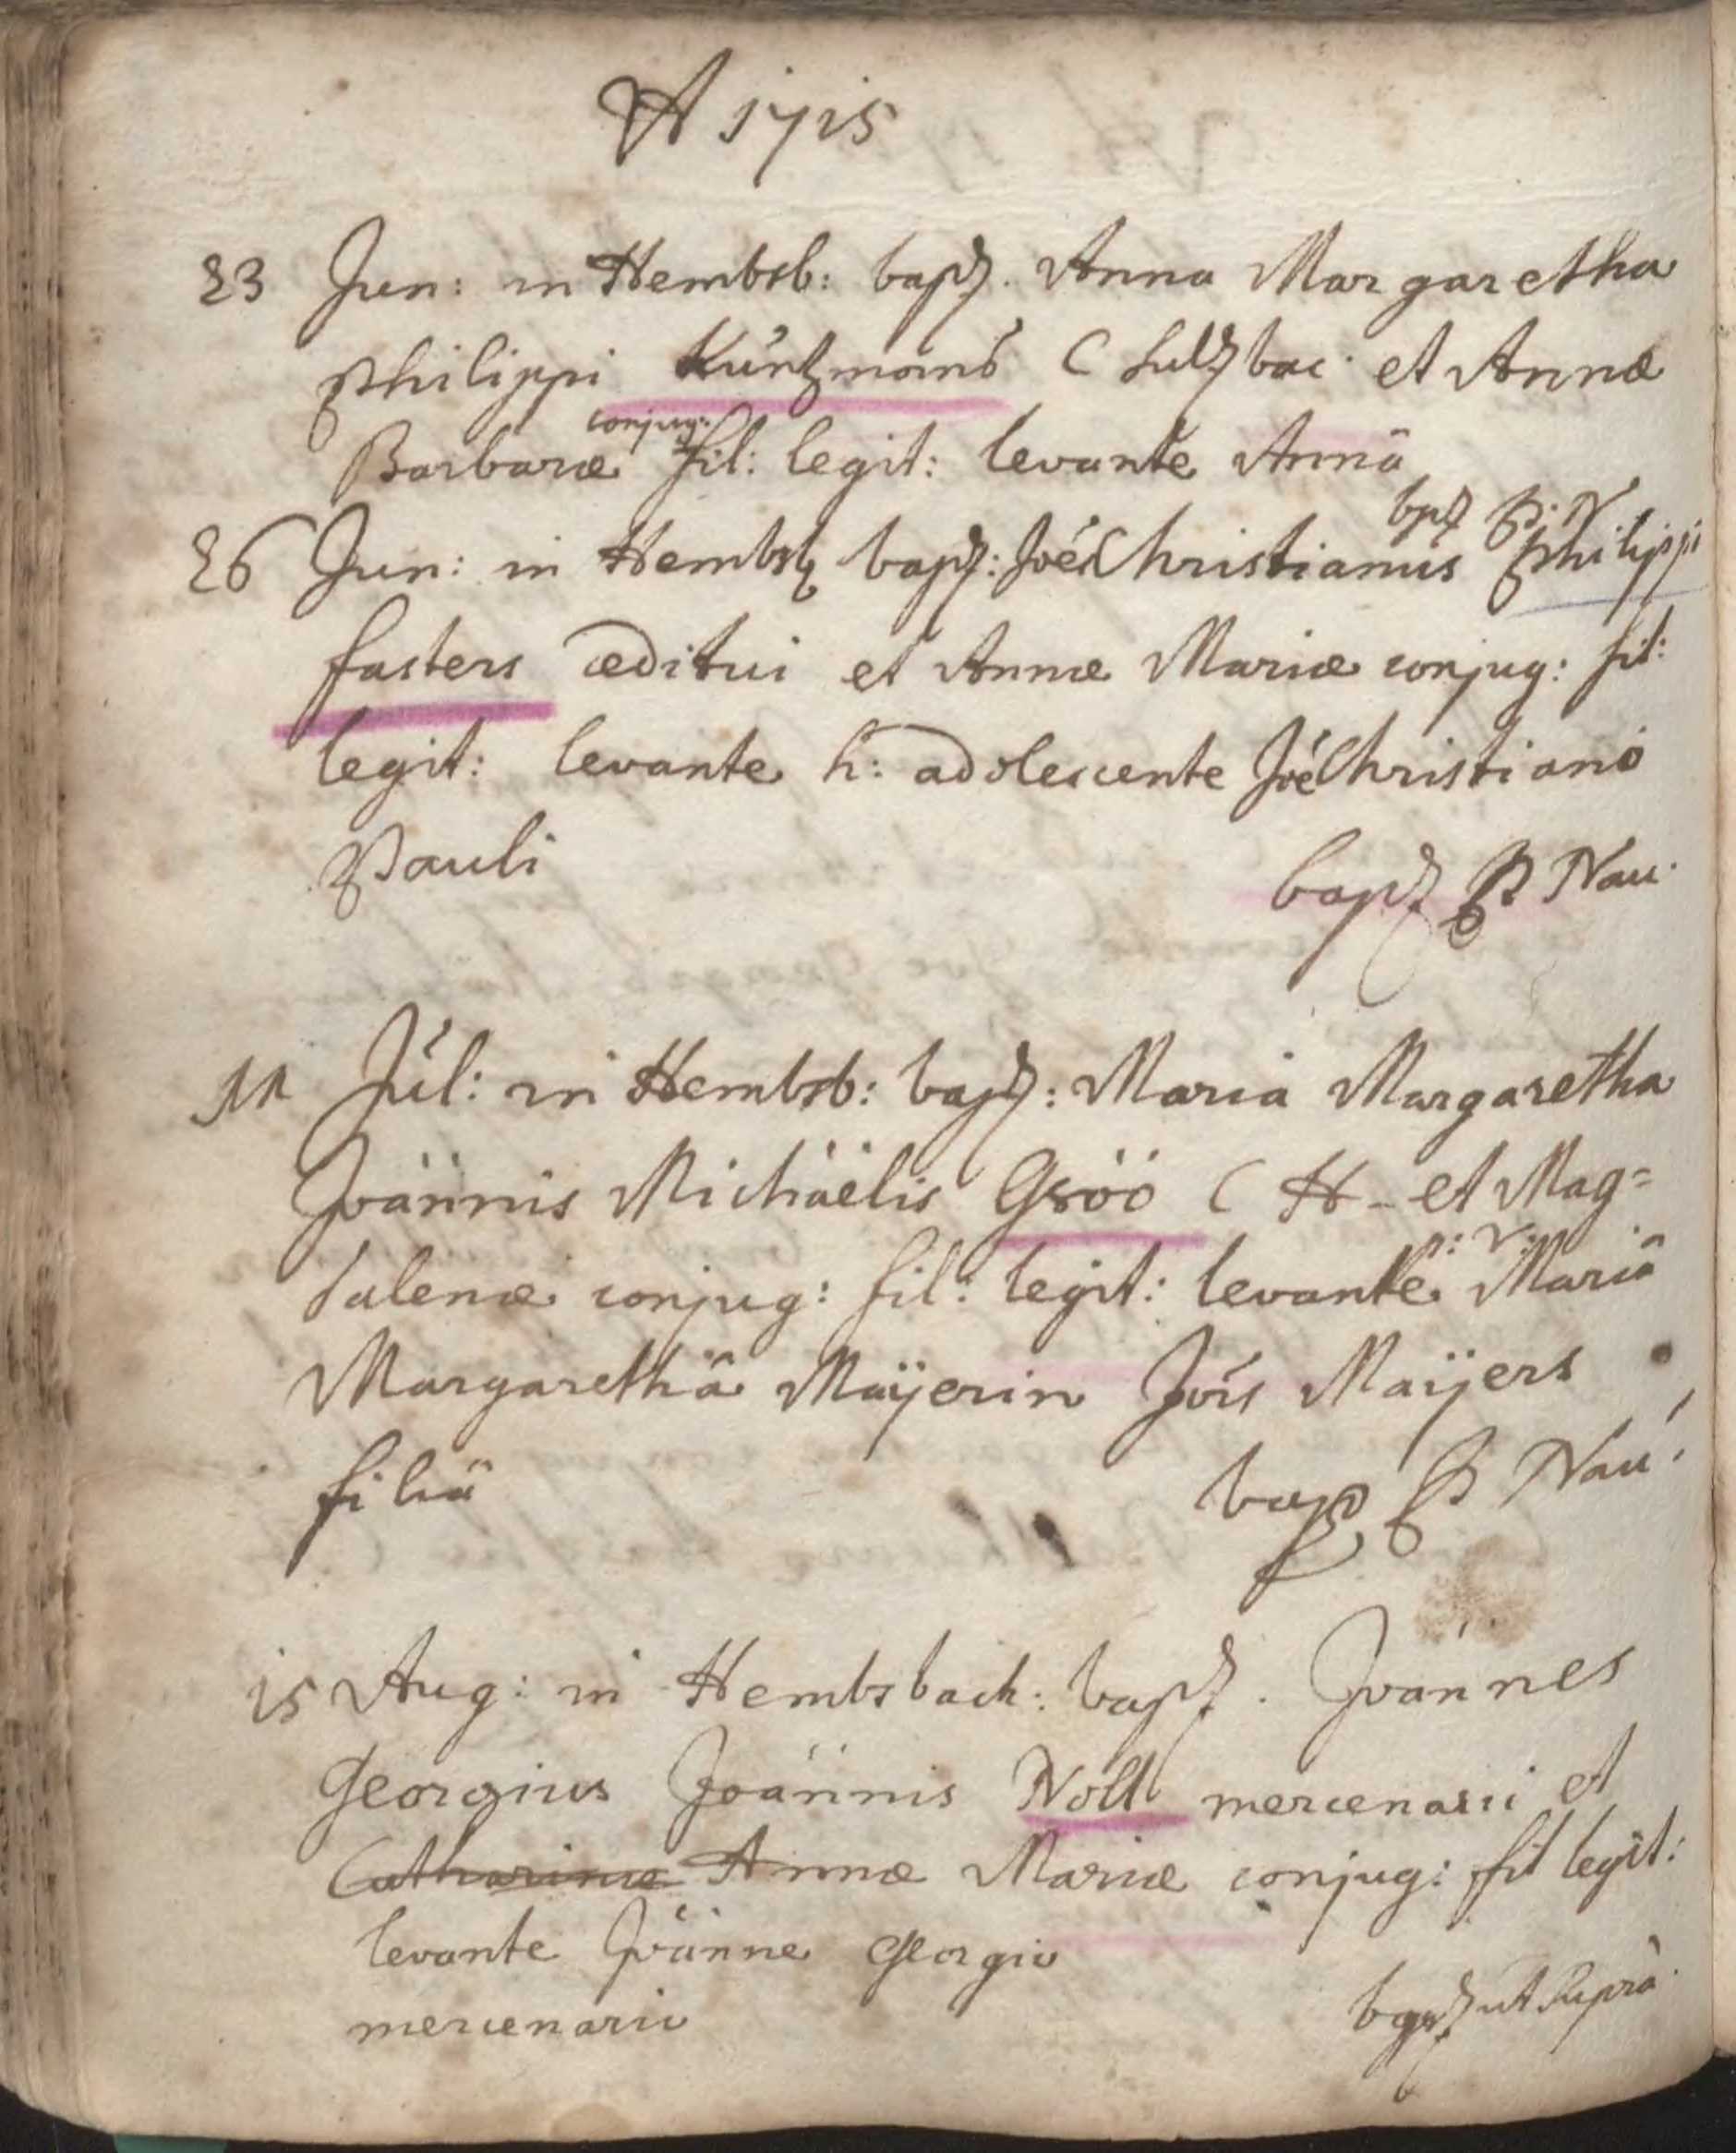 A 1715
23 Jun: in Hembsb: bapt. Anna Margaretha
Philippi Kuntzmans C Sultzbac. et Annæ
Barbaræ conjug: fil: legit: levante Annâ
bpt P. N
26 Jun: in Hembsb bapt: Joēs Christianus Philippi
fasters æditui et Annæ Mariæ conjug: fil:
legit: levante h: adolescente Joē Christiano
Pauli bapt P Nau.
11 Jul: in Hembsb: bapt: Maria Margaretha
Joannis Michaëlis Gröö C H - et Mag=
dalenæ conjug: fil: legit: levante p: v: Mariâ
Margarethâ Maÿerin Jois Maÿers
filiâ bapt P Nau.
15 Aug: in Hembsbach: bapt. Joannes
Georgius Joannis Noll mercenarii et
Catharinæ Annæ Mariæ conjug: fil legit:
levante Joanne Georgio
mercenario bapt ut Suprà.